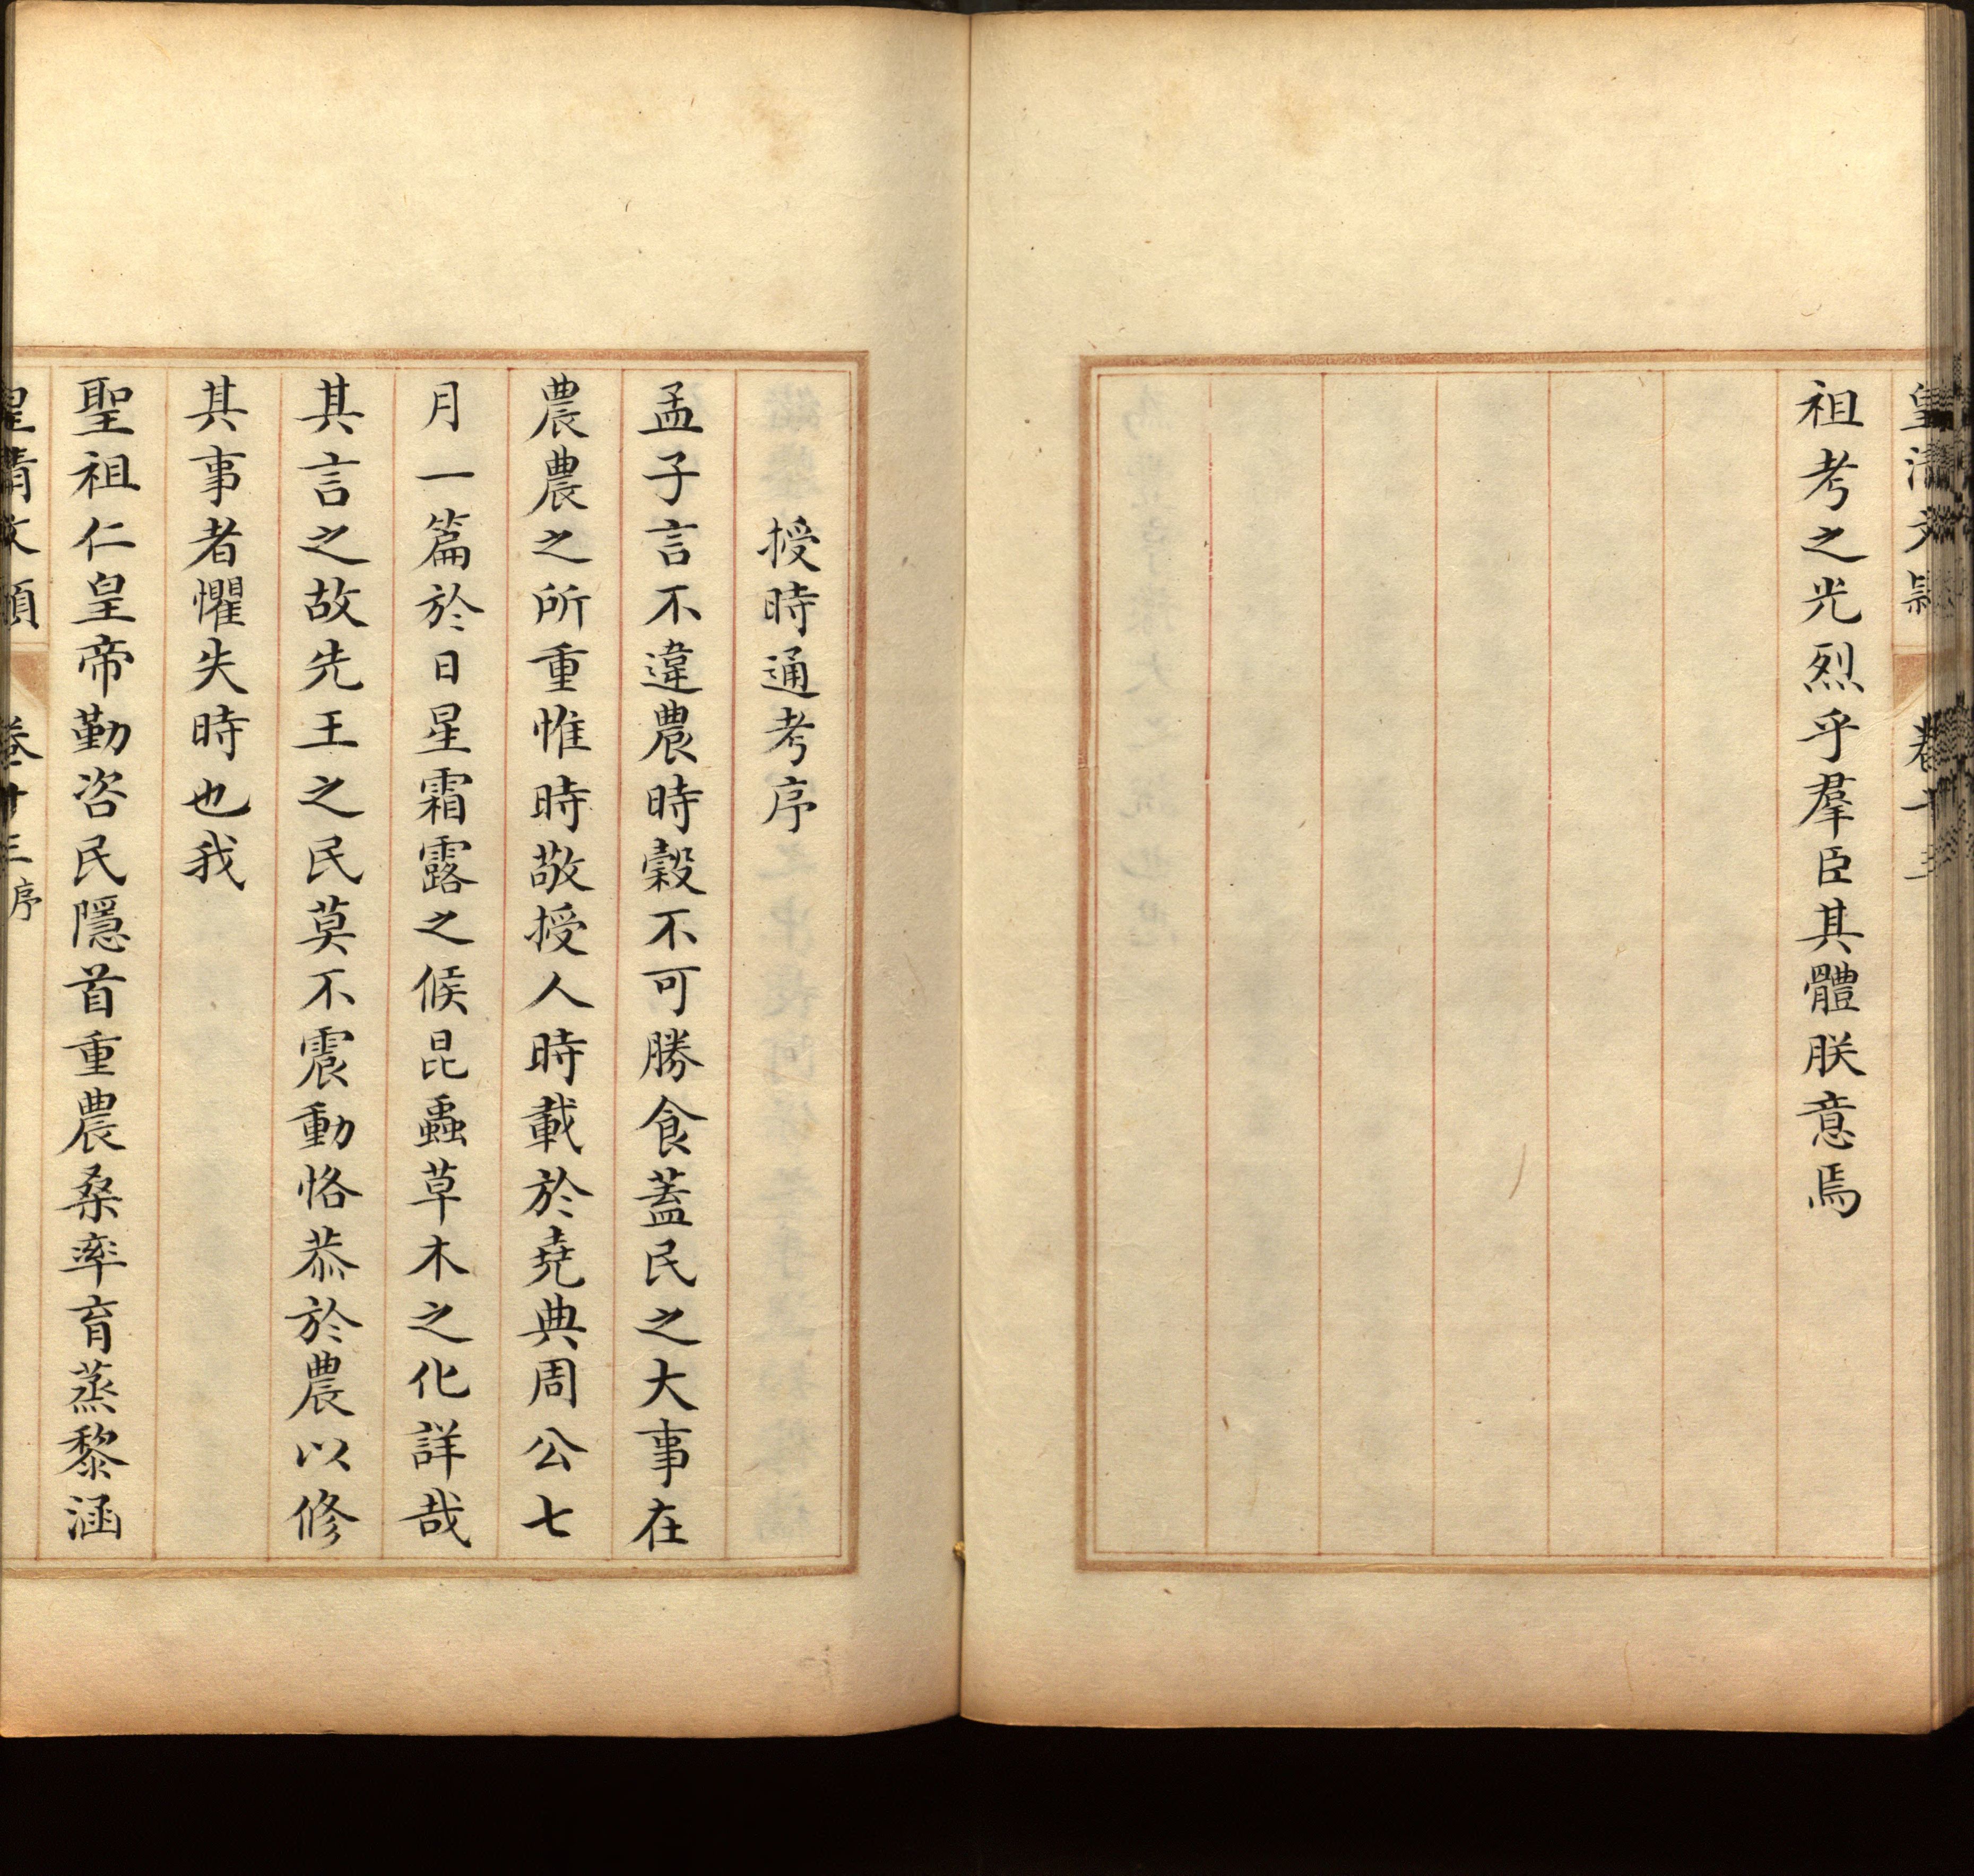 皇清文穎 卷十三
祖考之光烈乎羣臣其體朕意焉
授時通考序
孟子言不違農時穀不可勝食蓋民之大事在
農農之所重惟時敬授人時載於堯典周公七
月一篇於日星霜露之候昆蟲草木之化詳哉
其言之故先王之民莫不震動恪恭於農以修
其事者懼失時也我
聖祖仁皇帝勤咨民隱首重農桑率育蒸黎涵
皇清文穎 卷十三 序